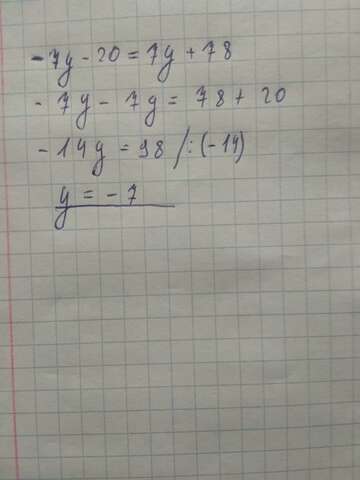 -7y-20=7y+78
-7y-7y=78+20
-14y=98/:(-14)
y=-7